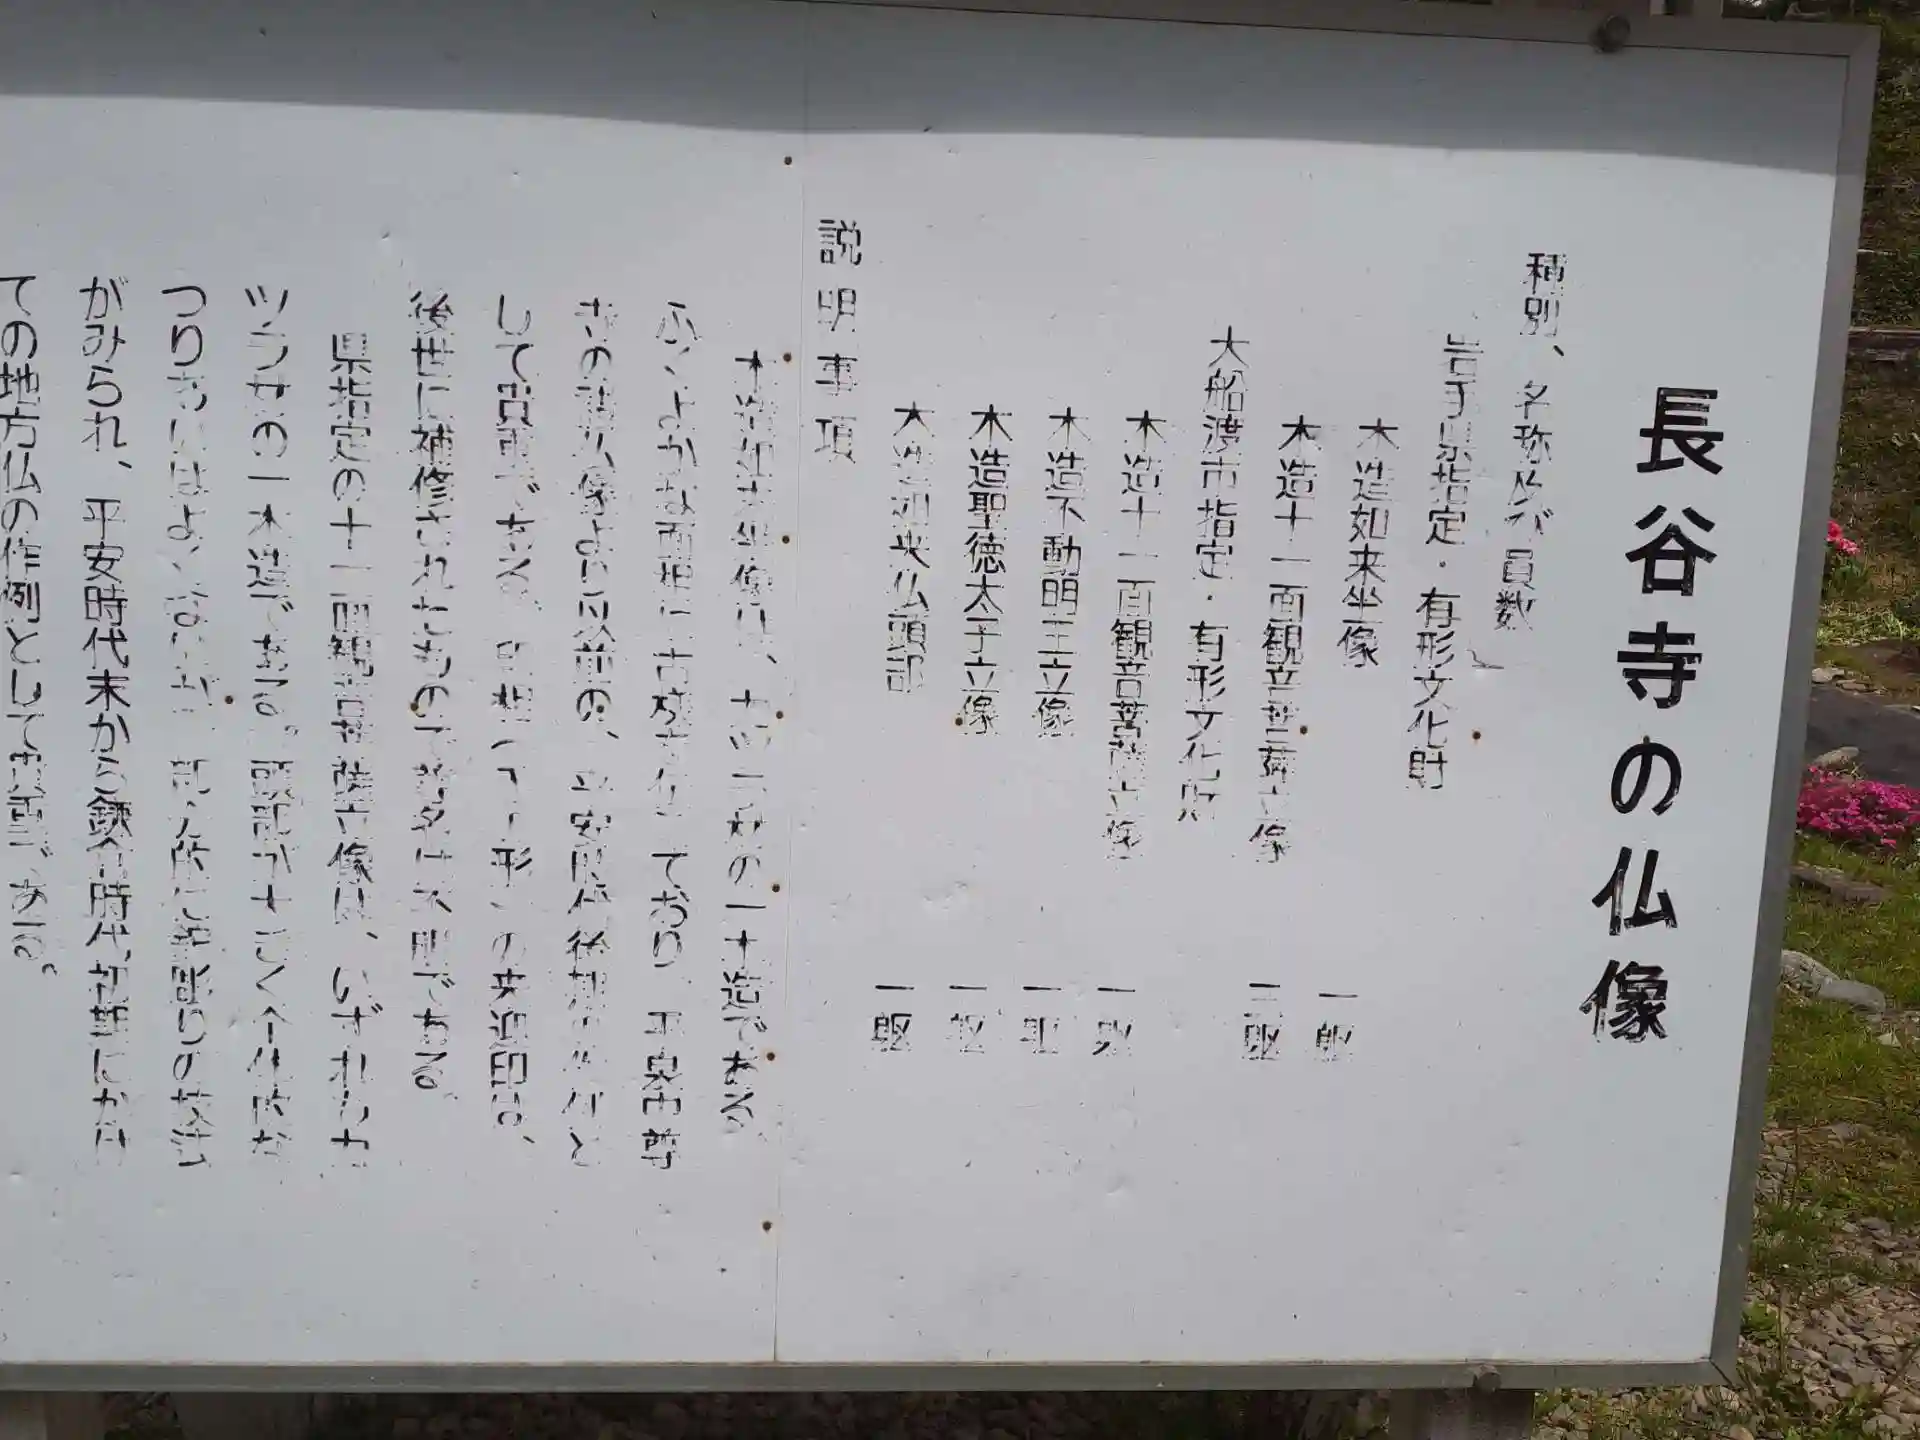 長谷寺の仏像
種別、名称及び員数
岩手県指定・有形文化財
木造如来坐像 一躯
木造十一面観音菩薩立像 二躯
大船渡市指定・有形文化財
木造十一面観音菩薩立像 一躯
木造不動明王立像 一躯
木造聖徳太子立像 一躯
木造如来仏頭部 一躯
説明事項
木造如来坐像は、カツラ材の一木造である。
ふくよかな面相に古様を伝えており、平泉中尊
寺の諸仏像より以前の、平安時代後期の作と
して貴重である。印相(手の形)の来迎印は、
後世に補修されたもので尊名は不明である。
県指定の十一面観音菩薩立像は、いずれもカ
ツラ材の一木造である。頭部が大きく全体的な
つりあいはよくないが
がみられ、平安時代末から鎌倉時代初期にかけ
ての地方仏の作例として貴重である。